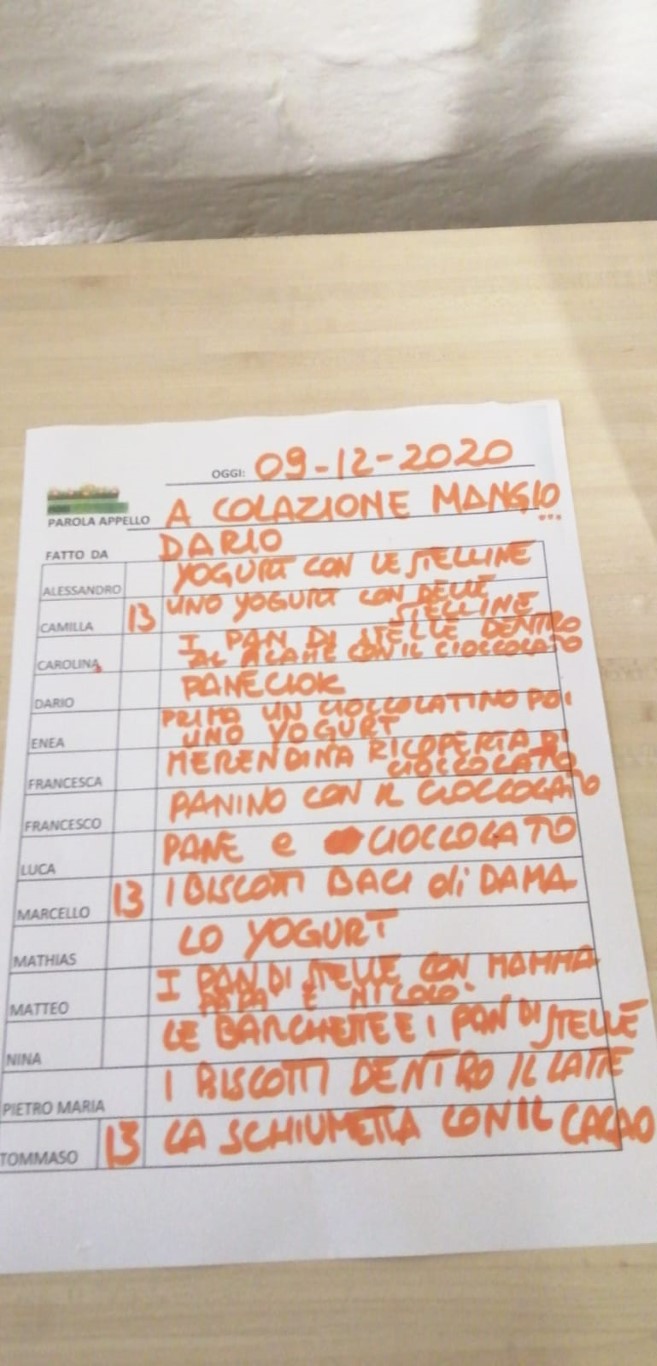 OGGI: 09-12-2020
PAROLA APPELLO A COLAZIONE MANGIO ...
FATTO DA DARIO
ALESSANDRO YOGURT CON LE STELLINE
CAMILLA 13 UNO YOGURT CON DELLE
STELLINE
CAROLINA I PAN DI STELLE DENTRO
CON IL CIOCCOLATO
DARIO PANECIOK
ENEA PRIMA UN CIOCCOLATINO POI
UNO YOGURT
FRANCESCA MERENDINA RICOPERTA DI
CIOCCOLATO
FRANCESCO PANINO CON IL CIOCCOLATO
LUCA PANE e CIOCCOLATO
MARCELLO 13 I BISCOTTI BACI di DAMA
MATHIAS LO YOGURT
MATTEO I PAN DI STELLE CON MAMMA
PAPA' E NICOLO'
NINA LE BARCHETTE E I PAN DI STELLE
PIETRO MARIA I BISCOTTI DENTRO IL LATTE
TOMMASO 13 LA SCHIUMETTA CON IL CACAO